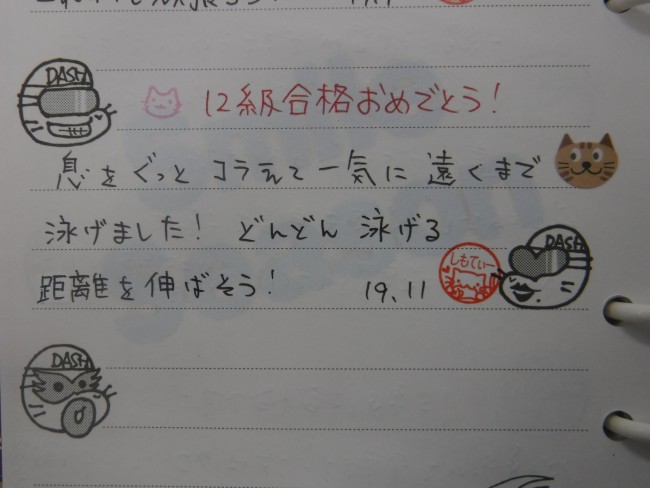 DASH
12級合格おめでとう!
息をぐっとコラえて一気に遠くまで
泳げました! どんどん泳げる
DASH
距離を伸ばそう! 19.11 しもてぃー
DASH